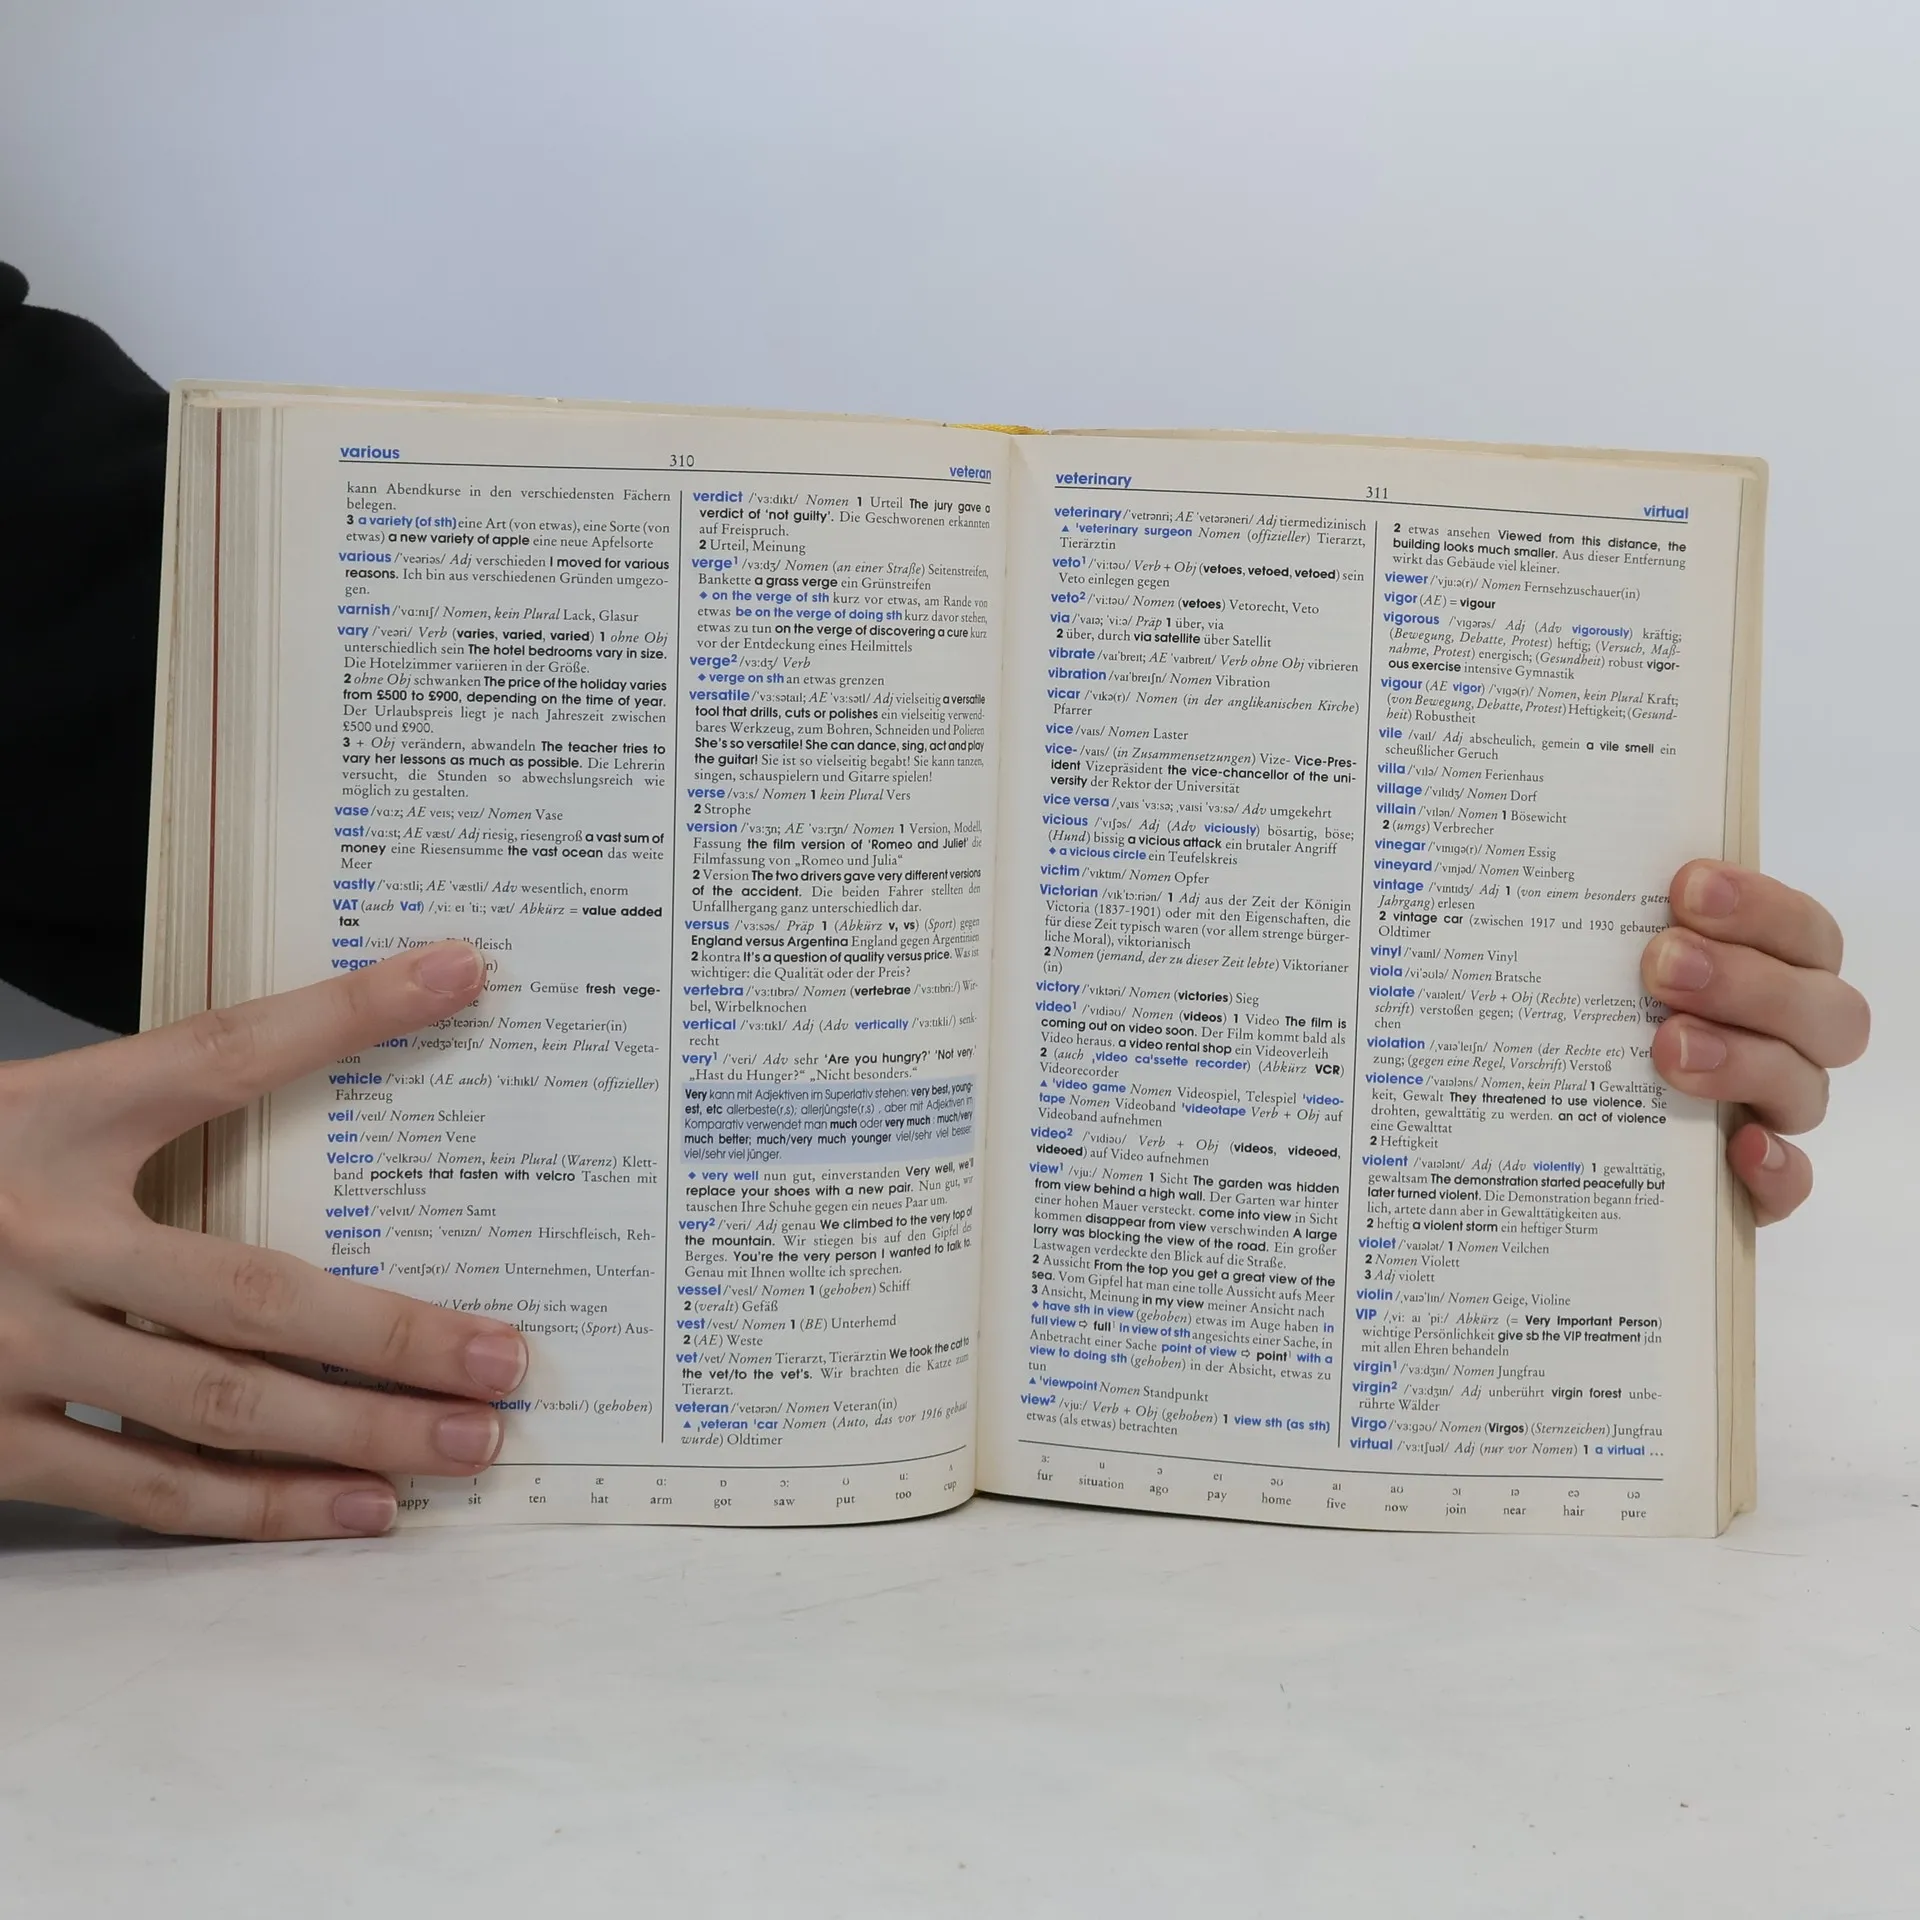 various
310
veteran
kann Abendkurse in den verschiedensten Fächern
belegen.
3 a variety (of sth) eine Art (von etwas), eine Sorte (von
etwas) a new variety of apple eine neue Apfelsorte
various /ˈveəriəs/ Adj verschieden I moved for various
reasons. Ich bin aus verschiedenen Gründen umgezo-
gen.
varnish /ˈvɑːnɪʃ/ Nomen, kein Plural Lack, Glasur
vary /ˈveəri/ Verb (varies, varied, varied) 1 ohne Obj
unterschiedlich sein The hotel bedrooms vary in size.
Die Hotelzimmer variieren in der Größe.
2 ohne Obj schwanken The price of the holiday varies
from £500 to £900, depending on the time of year.
Der Urlaubspreis liegt je nach Jahreszeit zwischen
£500 und £900.
3 + Obj verändern, abwandeln The teacher tries to
vary her lessons as much as possible. Die Lehrerin
versucht, die Stunden so abwechslungsreich wie
möglich zu gestalten.
vase /vɑːz; AE veɪs; veɪz/ Nomen Vase
vast /vɑːst; AE væst/ Adj riesig, riesengroß a vast sum of
money eine Riesensumme the vast ocean das weite
Meer
vastly /ˈvɑːstli; AE ˈvæstli/ Adv wesentlich, enorm
VAT (auch Vat) /ˌviː eɪ ˈtiː; væt/ Abkürz = value added
tax
veal /viːl/
vegan
Nomen Gemüse fresh vege-
Nomen Vegetarier(in)
/ˌvedʒəˈteɪʃn/ Nomen, kein Plural Vegeta-
vehicle /ˈviːəkl (AE auch) ˈviːhɪkl/ Nomen (offizieller)
Fahrzeug
veil /veɪl/ Nomen Schleier
vein /veɪn/ Nomen Vene
Velcro /ˈvelkrəʊ/ Nomen, kein Plural (Warenz) Klett-
band pockets that fasten with velcro Taschen mit
Klettverschluss
velvet /ˈvelvɪt/ Nomen Samt
venison /ˈvenɪsn; ˈvenɪzn/ Nomen Hirschfleisch, Reh-
fleisch
venture¹ /ˈventʃə(r)/ Nomen Unternehmen, Unterfan-
Verb ohne Obj sich wagen
(Sport) Aus-
/ˈvɜːbəli/) (gehoben)
verdict /ˈvɜːdɪkt/ Nomen 1 Urteil The jury gave a
verdict of 'not guilty'. Die Geschworenen erkannten
auf Freispruch.
2 Urteil, Meinung
verge¹ /vɜːdʒ/ Nomen (an einer Straße) Seitenstreifen,
Bankette a grass verge ein Grünstreifen
◆ on the verge of sth kurz vor etwas, am Rande von
etwas be on the verge of doing sth kurz davor stehen,
etwas zu tun on the verge of discovering a cure kurz
vor der Entdeckung eines Heilmittels
verge² /vɜːdʒ/ Verb
◆ verge on sth an etwas grenzen
versatile /ˈvɜːsətaɪl; AE ˈvɜːsətl/ Adj vielseitig a versatile
tool that drills, cuts or polishes ein vielseitig verwend-
bares Werkzeug, zum Bohren, Schneiden und Polieren
She's so versatile! She can dance, sing, act and play
the guitar! Sie ist so vielseitig begabt! Sie kann tanzen,
singen, schauspielern und Gitarre spielen!
verse /vɜːs/ Nomen 1 kein Plural Vers
2 Strophe
version /ˈvɜːʒn; AE ˈvɜːrʒn/ Nomen 1 Version, Modell,
Fassung the film version of 'Romeo and Juliet' die
Filmfassung von „Romeo und Julia“
2 Version The two drivers gave very different versions
of the accident. Die beiden Fahrer stellten den
Unfallhergang ganz unterschiedlich dar.
versus /ˈvɜːsəs/ Präp 1 (Abkürz v, vs) (Sport) gegen
England versus Argentina England gegen Argentinien
2 kontra It's a question of quality versus price. Was ist
wichtiger: die Qualität oder der Preis?
vertebra /ˈvɜːtɪbrə/ Nomen (vertebrae /ˈvɜːtɪbriː/) Wir-
bel, Wirbelknochen
vertical /ˈvɜːtɪkl/ Adj (Adv vertically /ˈvɜːtɪkli/) senk-
recht
very¹ /ˈveri/ Adv sehr 'Are you hungry?' 'Not very.'
„Hast du Hunger?“ „Nicht besonders.“
Very kann mit Adjektiven im Superlativ stehen: very best, young-
est, etc allerbeste(r,s); allerjüngste(r,s) , aber mit Adjektiven im
Komparativ verwendet man much oder very much : much/very
much better; much/very much younger viel/sehr viel besser,
viel/sehr viel jünger.
◆ very well nun gut, einverstanden Very well, we'll
replace your shoes with a new pair. Nun gut, wir
tauschen Ihre Schuhe gegen ein neues Paar um.
very² /ˈveri/ Adj genau We climbed to the very top of
the mountain. Wir stiegen bis auf den Gipfel des
Berges. You're the very person I wanted to talk to.
Genau mit Ihnen wollte ich sprechen.
vessel /ˈvesl/ Nomen 1 (gehoben) Schiff
2 (veralt) Gefäß
vest /vest/ Nomen 1 (BE) Unterhemd
2 (AE) Weste
vet /vet/ Nomen Tierarzt, Tierärztin We took the cat to
the vet/to the vet's. Wir brachten die Katze zum
Tierarzt.
veteran /ˈvetərən/ Nomen Veteran(in)
▲ ˌveteran ˈcar Nomen (Auto, das vor 1916 gebaut
wurde) Oldtimer
i ɪ e æ ɑː ɒ ɔː ʊ uː ʌ
happy sit ten hat arm got saw put too cup
veterinary
311
virtual
veterinary /ˈvetrənri; AE ˈvetərəneri/ Adj tiermedizinisch
▲ ˈveterinary surgeon Nomen (offizieller) Tierarzt,
Tierärztin
veto¹ /ˈviːtəʊ/ Verb + Obj (vetoes, vetoed, vetoed) sein
Veto einlegen gegen
veto² /ˈviːtəʊ/ Nomen (vetoes) Vetorecht, Veto
via /ˈvaɪə; ˈviːə/ Präp 1 über, via
2 über, durch via satellite über Satellit
vibrate /vaɪˈbreɪt; AE ˈvaɪbreɪt/ Verb ohne Obj vibrieren
vibration /vaɪˈbreɪʃn/ Nomen Vibration
vicar /ˈvɪkə(r)/ Nomen (in der anglikanischen Kirche)
Pfarrer
vice /vaɪs/ Nomen Laster
vice- /vaɪs/ (in Zusammensetzungen) Vize- Vice-Pres-
ident Vizepräsident the vice-chancellor of the uni-
versity der Rektor der Universität
vice versa /ˌvaɪs ˈvɜːsə; ˌvaɪsi ˈvɜːsə/ Adv umgekehrt
vicious /ˈvɪʃəs/ Adj (Adv viciously) bösartig, böse;
(Hund) bissig a vicious attack ein brutaler Angriff
◆ a vicious circle ein Teufelskreis
victim /ˈvɪktɪm/ Nomen Opfer
Victorian /vɪkˈtɔːriən/ 1 Adj aus der Zeit der Königin
Victoria (1837-1901) oder mit den Eigenschaften, die
für diese Zeit typisch waren (vor allem strenge bürger-
liche Moral), viktorianisch
2 Nomen (jemand, der zu dieser Zeit lebte) Viktorianer
(in)
victory /ˈvɪktəri/ Nomen (victories) Sieg
video¹ /ˈvɪdiəʊ/ Nomen (videos) 1 Video The film is
coming out on video soon. Der Film kommt bald als
Video heraus. a video rental shop ein Videoverleih
2 (auch ˌvideo caˈssette recorder) (Abkürz VCR)
Videorecorder
▲ ˈvideo game Nomen Videospiel, Telespiel ˈvideo-
tape Nomen Videoband ˈvideotape Verb + Obj auf
Videoband aufnehmen
video² /ˈvɪdiəʊ/ Verb + Obj (videos, videoed,
videoed) auf Video aufnehmen
view¹ /vjuː/ Nomen 1 Sicht The garden was hidden
from view behind a high wall. Der Garten war hinter
einer hohen Mauer versteckt. come into view in Sicht
kommen disappear from view verschwinden A large
lorry was blocking the view of the road. Ein großer
Lastwagen verdeckte den Blick auf die Straße.
2 Aussicht From the top you get a great view of the
sea. Vom Gipfel hat man eine tolle Aussicht aufs Meer
3 Ansicht, Meinung in my view meiner Ansicht nach
◆ have sth in view (gehoben) etwas im Auge haben in
full view ⇨ full¹ in view of sth angesichts einer Sache, in
Anbetracht einer Sache point of view ⇨ point¹ with a
view to doing sth (gehoben) in der Absicht, etwas zu
tun
▲ ˈviewpoint Nomen Standpunkt
view² /vjuː/ Verb + Obj (gehoben) 1 view sth (as sth)
etwas (als etwas) betrachten
2 etwas ansehen Viewed from this distance, the
building looks much smaller. Aus dieser Entfernung
wirkt das Gebäude viel kleiner.
viewer /ˈvjuːə(r)/ Nomen Fernsehzuschauer(in)
vigor (AE) = vigour
vigorous /ˈvɪgərəs/ Adj (Adv vigorously) kräftig;
(Bewegung, Debatte, Protest) heftig; (Versuch, Maß-
nahme, Protest) energisch; (Gesundheit) robust vigor-
ous exercise intensive Gymnastik
vigour (AE vigor) /ˈvɪgə(r)/ Nomen, kein Plural Kraft;
(von Bewegung, Debatte, Protest) Heftigkeit; (Gesund-
heit) Robustheit
vile /vaɪl/ Adj abscheulich, gemein a vile smell ein
scheußlicher Geruch
villa /ˈvɪlə/ Nomen Ferienhaus
village /ˈvɪlɪdʒ/ Nomen Dorf
villain /ˈvɪlən/ Nomen 1 Bösewicht
2 (umgs) Verbrecher
vinegar /ˈvɪnɪgə(r)/ Nomen Essig
vineyard /ˈvɪnjəd/ Nomen Weinberg
vintage /ˈvɪntɪdʒ/ Adj 1 (von einem besonders guten
Jahrgang) erlesen
2 vintage car (zwischen 1917 und 1930 gebauter)
Oldtimer
vinyl /ˈvaɪnl/ Nomen Vinyl
viola /viˈəʊlə/ Nomen Bratsche
violate /ˈvaɪəleɪt/ Verb + Obj (Rechte) verletzen; (Vor-
schrift) verstoßen gegen; (Vertrag, Versprechen) bre-
chen
violation /ˌvaɪəˈleɪʃn/ Nomen (der Rechte etc)
zung; (gegen eine Regel, Vorschrift) Verstoß
violence /ˈvaɪələns/ Nomen, kein Plural 1 Gewalttätig-
keit, Gewalt They threatened to use violence. Sie
drohten, gewalttätig zu werden. an act of violence
eine Gewalttat
2 Heftigkeit
violent /ˈvaɪələnt/ Adj (Adv violently) 1 gewalttätig,
gewaltsam The demonstration started peacefully but
later turned violent. Die Demonstration begann fried-
lich, artete dann aber in Gewalttätigkeiten aus.
2 heftig a violent storm ein heftiger Sturm
violet /ˈvaɪələt/ 1 Nomen Veilchen
2 Nomen Violett
3 Adj violett
violin /ˌvaɪəˈlɪn/ Nomen Geige, Violine
VIP /ˌviː aɪ ˈpiː/ Abkürz (= Very Important Person)
wichtige Persönlichkeit give sb the VIP treatment jdn
mit allen Ehren behandeln
virgin¹ /ˈvɜːdʒɪn/ Nomen Jungfrau
virgin² /ˈvɜːdʒɪn/ Adj unberührt virgin forest unbe-
rührte Wälder
Virgo /ˈvɜːgəʊ/ Nomen (Virgos) (Sternzeichen) Jungfrau
virtual /ˈvɜːtʃuəl/ Adj (nur vor Nomen) 1 a virtual ...
ɜː u ə eɪ əʊ aɪ aʊ ɔɪ ɪə eə ʊə
fur situation ago pay home five now join near hair pure